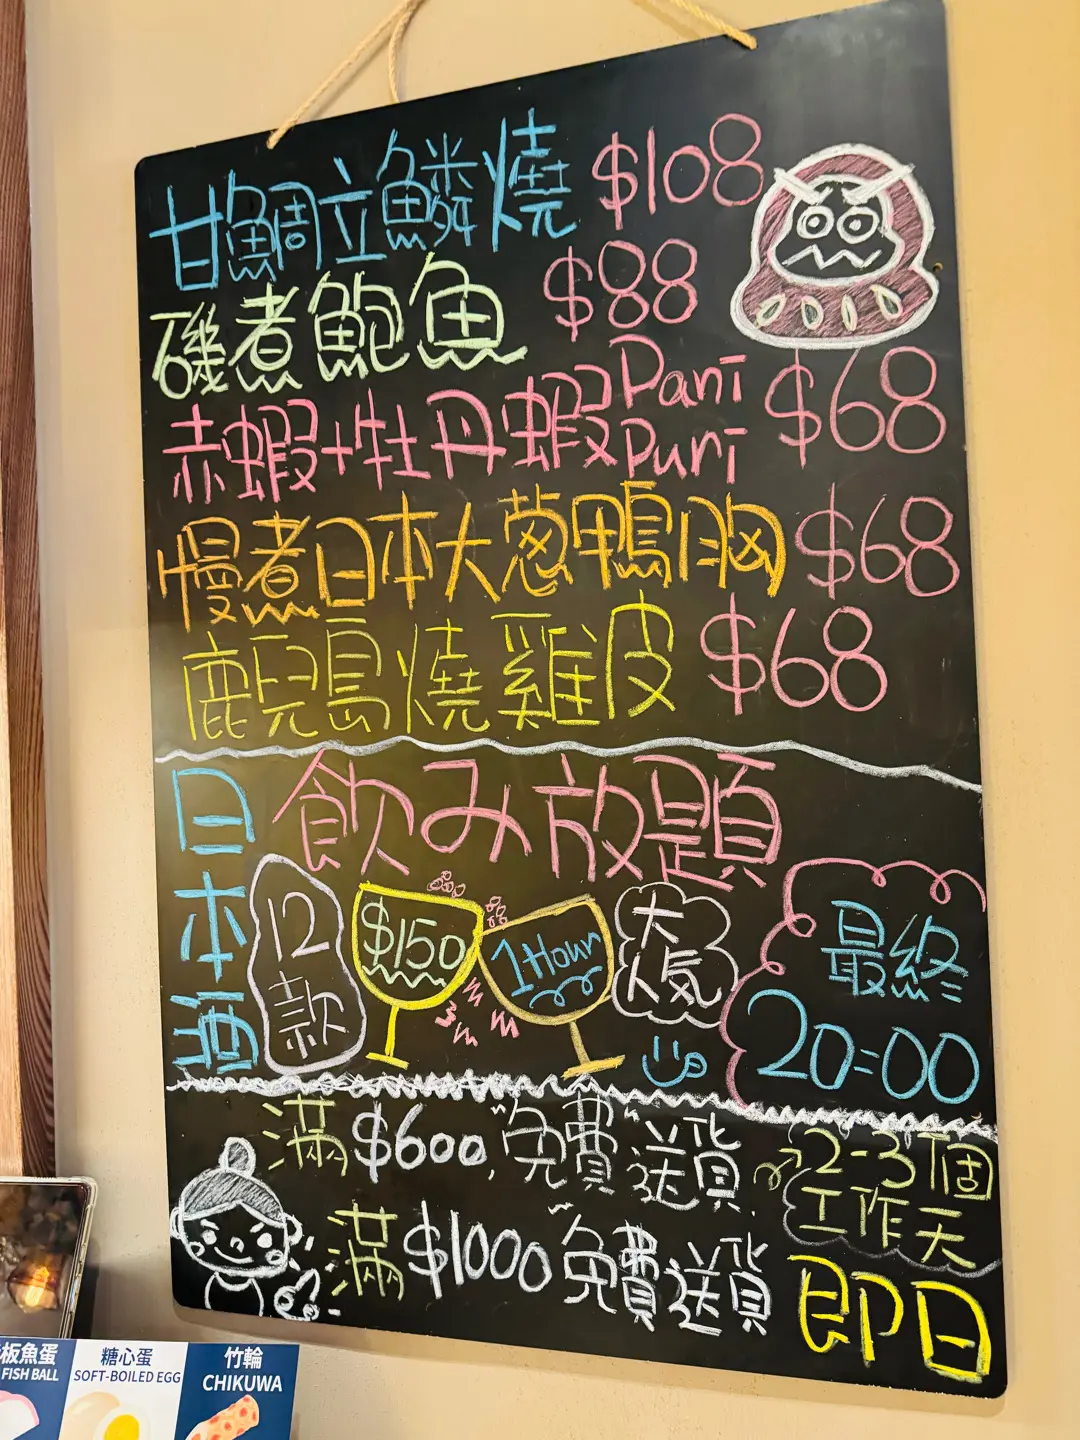 甘鯛立鱗燒 $108
磯煮鮑魚 $88
赤蝦+牡丹蝦 Pani Puri $68
慢煮日本大葱鴨胸 $68
鹿兒島燒雞皮 $68
日本酒
飲み放題
12款
$150
1 Hour
大人気
最終
20:00
滿$600,"免費"送貨
2-3個工作天
滿$1000"免費送貨
即日
板魚蛋
FISH BALL
糖心蛋
SOFT-BOILED EGG
竹輪
CHIKUWA